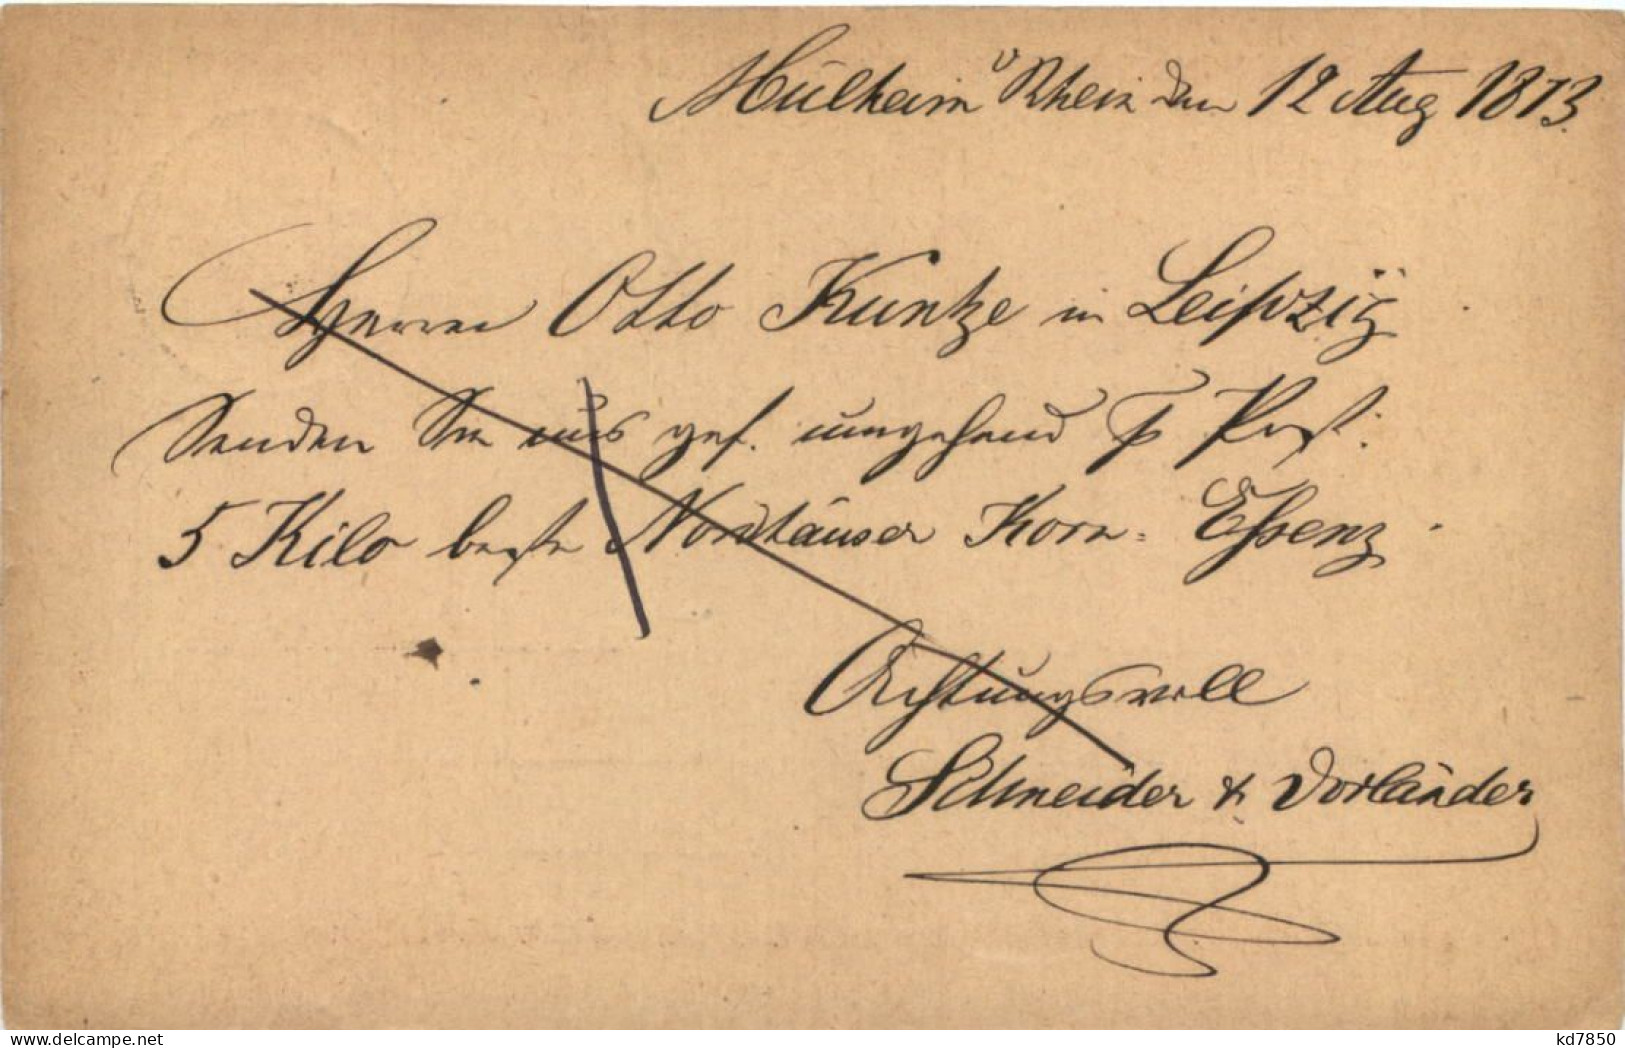 Mülheim a/ Rhein den 12 Aug 1873.
Herrn Otto Kuntze in Leipzig
Senden Sie uns gef. umgehend p Post.
5 Kilo beste Nordhäuser Korn- Essenz.
Achtungsvoll
Schneider & Vorländer
www.delcampe.net
kd7850